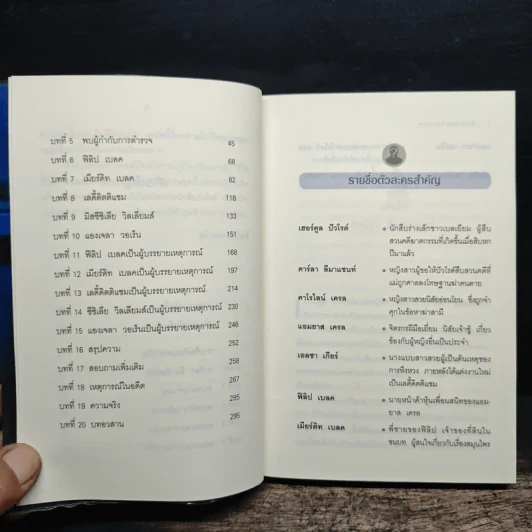 บทที่ 5 พบผู้กำกับการตำรวจ 45
บทที่ 6 ฟิลิป เบลค 68
บทที่ 7 เมียร์ดิท เบลค 82
บทที่ 8 เลดี้ดิตติแชม 118
บทที่ 9 มิสซีซิเลีย วิลเลียมส์ 133
บทที่ 10 แองเจลา วอเร็น 151
บทที่ 11 ฟิลิป เบลคเป็นผู้บรรยายเหตุการณ์ 168
บทที่ 12 เมียร์ดิท เบลคเป็นผู้บรรยายเหตุการณ์ 197
บทที่ 13 เลดี้ดิตติแชมเป็นผู้บรรยายเหตุการณ์ 214
บทที่ 14 ซีซิเลีย วิลเลียมส์เป็นผู้บรรยายเหตุการณ์ 230
บทที่ 15 แองเจลา วอเร็นเป็นผู้บรรยายเหตุการณ์ 246
บทที่ 16 สรุปความ 252
บทที่ 17 สอบถามเพิ่มเติม 258
บทที่ 18 เหตุการณ์ในอดีต 267
บทที่ 19 ความจริง 285
บทที่ 20 บทอวสาน 295
รายชื่อตัวละครสำคัญ
เฮอร์คูล ปัวโรต์ • นักสืบร่างเล็กชาวเบลเยียม ผู้สืบ
สวนคดีฆาตกรรมที่เกิดขึ้นเมื่อสิบหก
ปีมาแล้ว
คาร์ลา ลีมาแชนท์ • หญิงสาวผู้ขอให้ปัวโรต์สืบสวนคดีที่
แม่ถูกศาลลงโทษฐานฆ่าคนตาย
คาโรไลน์ เครล • หญิงสาวสวยนิสัยอ่อนโยน ซึ่งถูกจำ
คุกในข้อหาฆ่าสามี
แอมยาส เครล • จิตรกรฝีมือเยี่ยม นิสัยเจ้าชู้ เกี่ยว
ข้องกับผู้หญิงอื่นเป็นประจำ
เอลซา เกียร์ • นางแบบสาวสวยผู้เป็นต้นเหตุของ
การหึงหวง ภายหลังได้แต่งงานใหม่
เป็นเลดี้ดิตติแชม
ฟิลิป เบลค • นายหน้าค้าหุ้นเพื่อนสนิทของแอม-
ยาส เครล
เมียร์ดิท เบลค • พี่ชายของฟิลิป เจ้าของที่ดินใน
ชนบท ผู้สนใจเกี่ยวกับเรื่องสมุนไพร